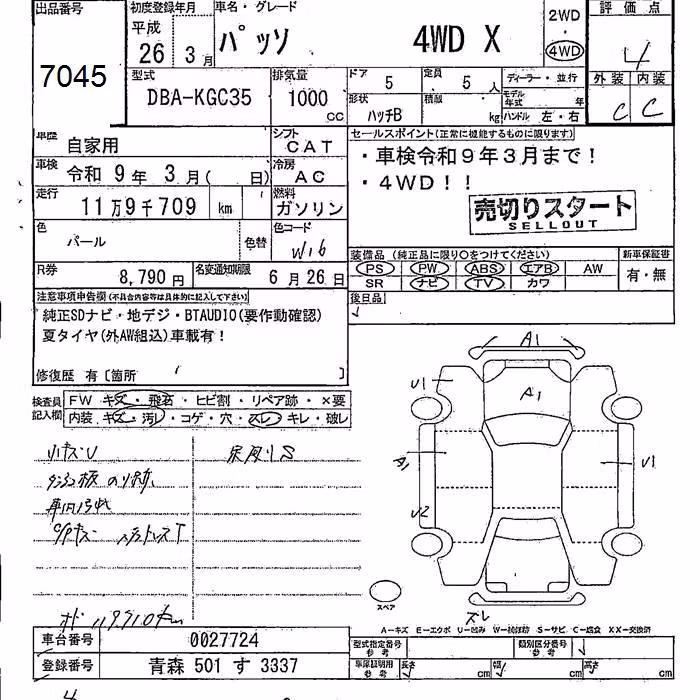 出品番号
7045
初度登録年月
平成
26 3月
車名・グレード
パッソ 4WD X
2WD
4WD
評価点
4
外装 内装
C C
型式
DBA-KGC35
排気量
1000 cc
ドア 5
定員 5 人
ディーラー・並行
形状
ハッチB
積載 kg
モデル年式 年
ハンドル 左・右
車歴 自家用
シフト CAT
車検 令和 9年 3月( 日)
冷房 AC
走行 11万9千709 km
燃料 ガソリン
色 パール 色替
色コード W16
R券 8,790円
名変通知期限 6月26日
セールスポイント(正常に機能するものに限ります)
・車検令和9年3月まで!
・4WD!!
売切りスタート
SELLOUT
装備品(純正品に限り○をつけてください)
新車保証書
PS PW ABS エアB AW
有・無
SR ナビ TV カワ
後日品
注意事項申告欄(不具合内容等は具体的に記入して下さい)
純正SDナビ・地デジ・BTAUDIO(要作動確認)
夏タイヤ(外AW組込)車載有!
修復歴 有〔箇所 〕
検査員記入欄
FW キズ・飛石・ヒビ割・リペア跡・×要
内装 キズ・汚レ・コゲ・穴・スレ・キレ・破レ
小キズU
車内汚れ
A1
U1
A1
A1
U1
U2
スペア
スレ
A-キズ E-エクボ U-凹み W-補修跡 S-サビ C-腐食 XX-交換済
車台番号 0027724
登録番号 青森 501 す 3337
型式指定番号 参考
類別区分番号 参考
車庫証明用 参考
長さ cm 幅 cm 高さ cm
4